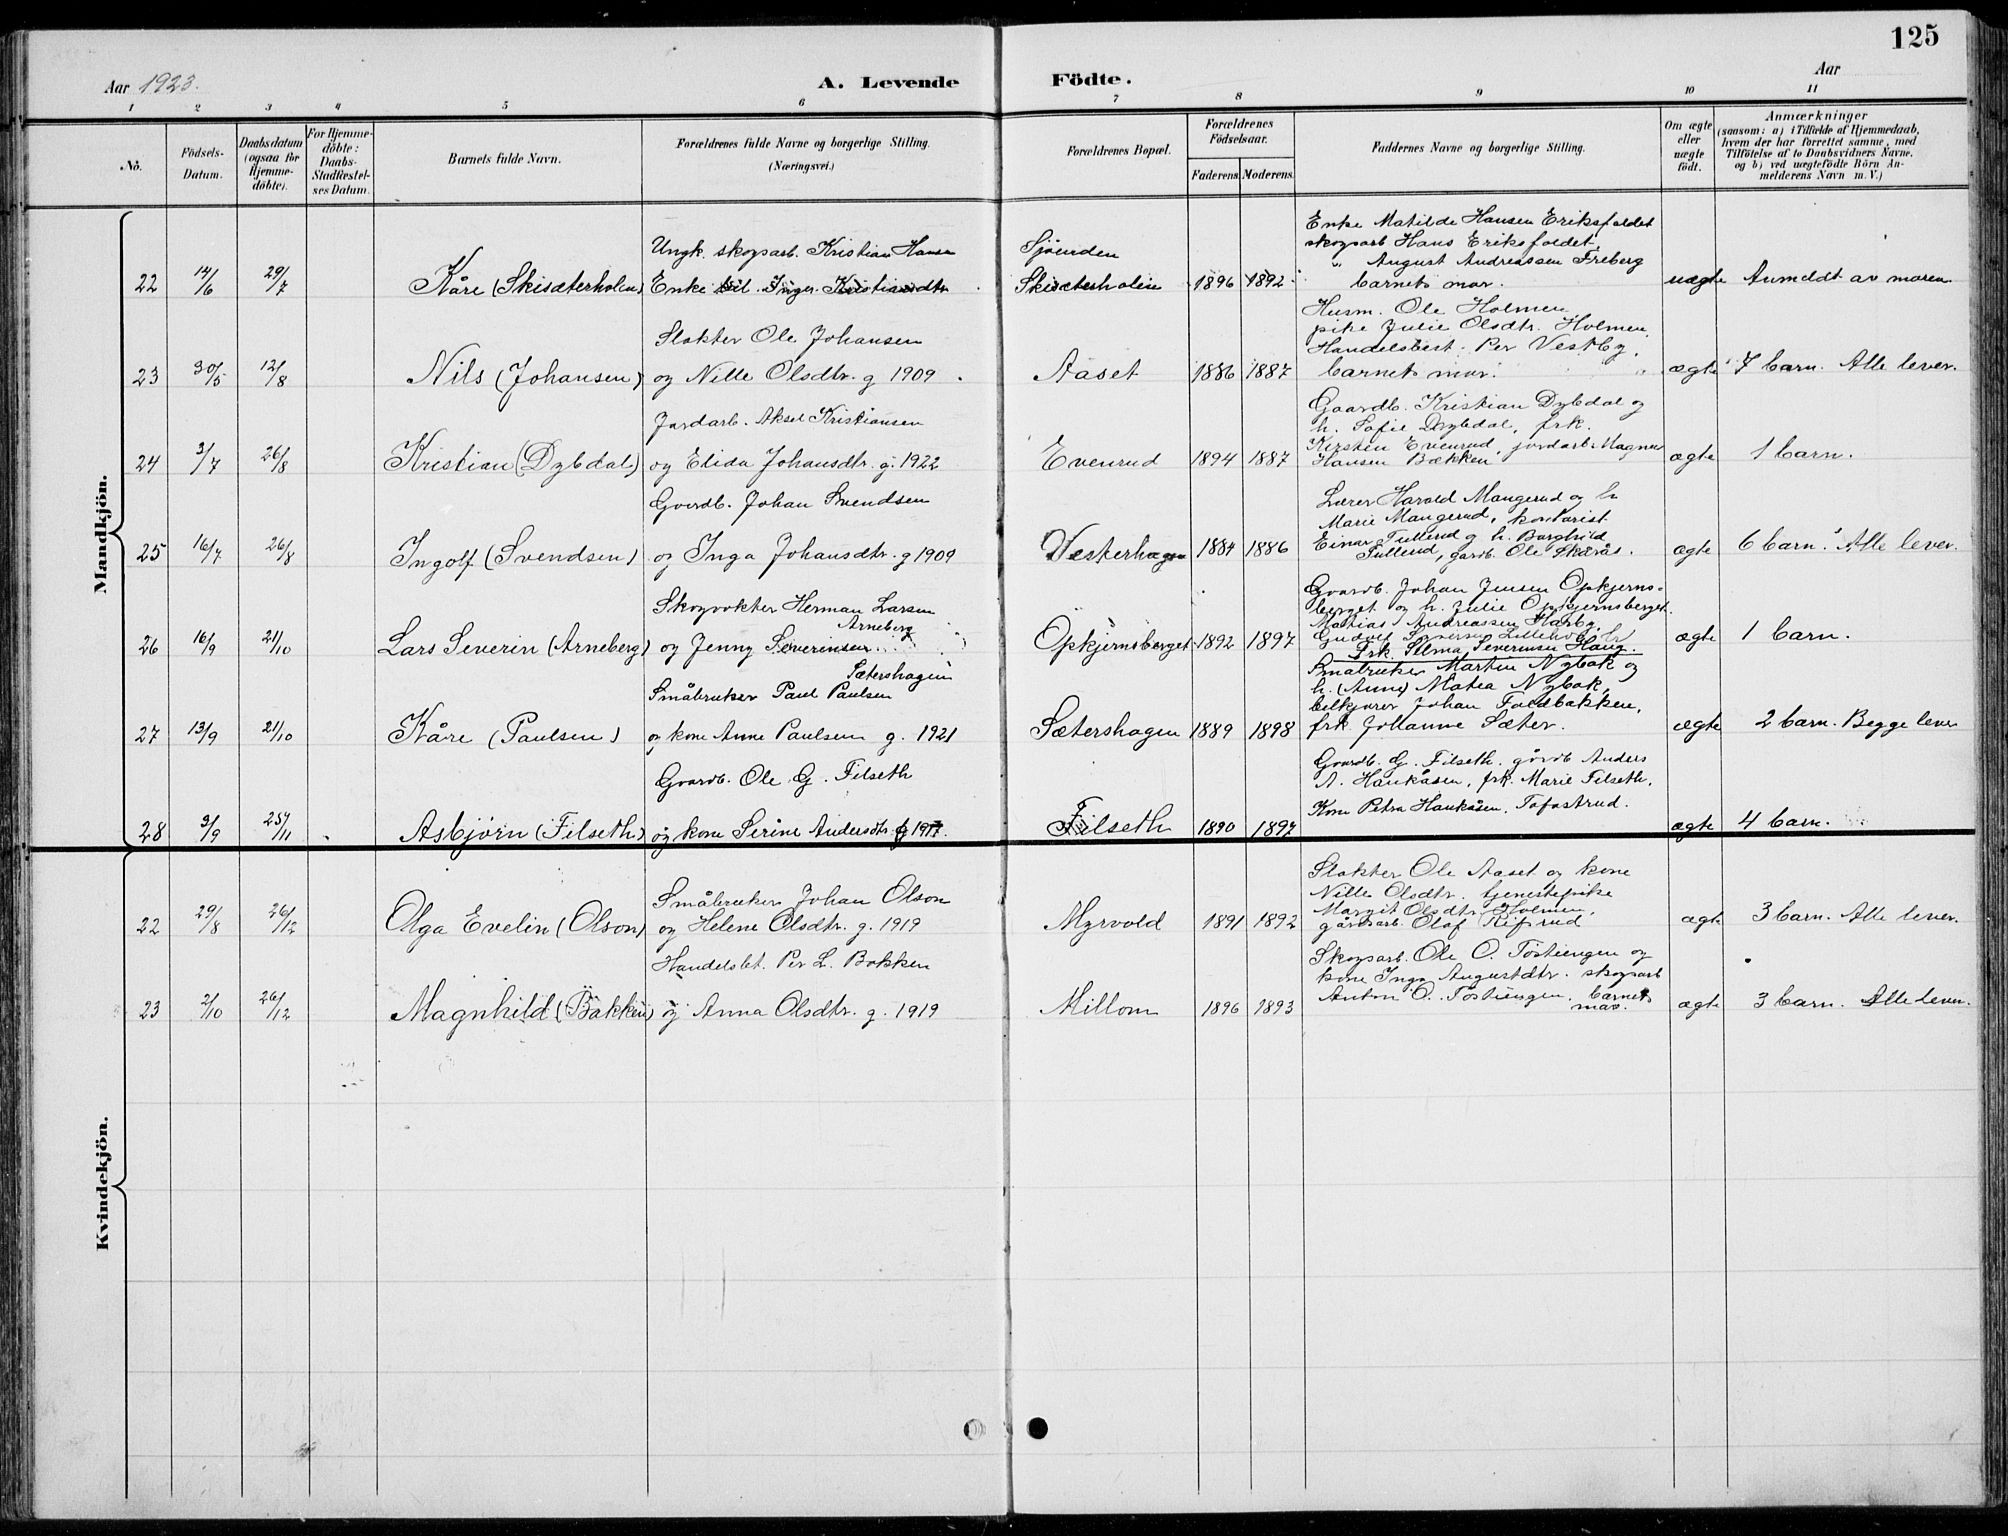 125
Aar 1923.
A. Levende Födte.
Aar
1 2 3 4 5 6 7 8 9 10 11
No.
Födsels-Datum.
Daabsdatum (ogsaa for Hjemme-döbte).
For Hjemme-döbte: Daabs-Stadfæstel-ses Datum.
Barnets fulde Navn.
Forældrenes fulde Navne og borgerlige Stilling.
(Næringsvei.)
Forældrenes Bopæl.
Forældrenes Födselsaar.
Faderens. Moderens.
Faddernes Navne og borgerlige Stilling.
Om ægte eller uægte födt.
Anmærkninger
(saasom: a) i Tilfælde af Hjemmedaab, hvem der har forrettet samme, med Tilföielse af to Daabsvidners Navne, og b) ved uægtefödte Börn An-melderens Navn m. V.)
Mandkjön.
22 14/6 29/7 Kåre (Skisæterholen)
Ungk. skogsarb. Kristian Hansen
Enke Inger Kristiansdtr
Sjöenden
Skisæterholen 1896 1892
Enke Matilde Hansen Eriksfoldet
skogsarb Hans Eriksfoldet,
" August Andreassen Freberg
barnets mor.
uægte Anmeldt av moren
23 30/5 12/8 Nils (Johansen)
Slakter Ole Johansen
og Nille Olsdtr. g 1909
Aaset 1886 1887
Husm. Ole Holmen,
pike Julie Olsdtr. Holmen,
Handelsbest. Per Vestby,
barnets mor.
ægte 7 barn. Alle lever.
24 3/7 26/8 Kristian (Dybdal)
Jordarb. Aksel Kristiansen
og Elida Johansdtr. g. 1922
Evenrud 1894 1887
Gaardb. Kristian Dybdal og
h. Sofie Dybdal, frk.
Kirsten Evenrud, jordarb. Magnus
Hansen Bækken
ægte 1 barn.
25 16/7 26/8 Ingolf (Svendsen)
Gaardb. Johan Svendsen
og Inga Johansdtr. g 1909
Vesterhagen 1884 1886
Lærer Harald Mangerud og h
Marie Mangerud, kontorist
Einar Tullerud og h. Borghild
Tullerud, gardb. Ole Skærås.
ægte 6 barn. Alle lever.
26 16/9 21/10 Lars Severin (Arneberg)
Skogvokter Herman Larsen
Arneberg
og Jenny Severinsen
Opkjernsberget 1892 1897
Gaardb. Johan Jensen Opkjerns-
berget og h. Julie Opkjernsberget.
Mathias Andreassen Harby,
Frk. Selma Severinsen Haug.
ægte 1 barn.
27 13/9 21/10 Kåre (Paulsen)
Sætershagen
Småbruker Paul Paulsen
og kone Anne Paulsen g. 1921
Sætershagen 1889 1898
Småbruker Martin Nybak og
h. (Anne) Matea Nybak,
bilkjører Johan Foldbakken,
frk. Johanne Sæter.
ægte 2 barn. Begge lever
28 3/9 25/11 Asbjørn (Filseth)
Gaardb. Ole G. Filseth
og kone Serine Andersdtr. g 1917.
Filseth 1890 1897
Gaardb. G. Filseth. gårdb Anders
A. Haukåsen, frk. Marie Filseth,
Kone Petra Haukåsen, Tofastrud.
ægte 4 barn.
Kvindekjön.
22 29/8 26/12 Olga Evelin (Olson)
Småbruker Johan Olson
og Helene Olsdtr. g. 1919
Myrvold 1891 1892
Slakter Ole Aaset og kone
Nille Olsdtr. tjenestepike
Margit Olsdtr. Holmen,
gårdsarb. Olaf Rifsrud
ægte 3 barn. Alle lever.
23 2/10 26/12 Magnhild (Bakken)
Handelsbet. Per L. Bakken
og Anna Olsdtr. g. 1919
Millom 1896 1893
Skogsarb. Ole O. Töstiengen og
kone Inga Augustdtr. skogsarb
Anton O. Töstiengen, barnets
mor.
ægte 3 barn. Alle lever.